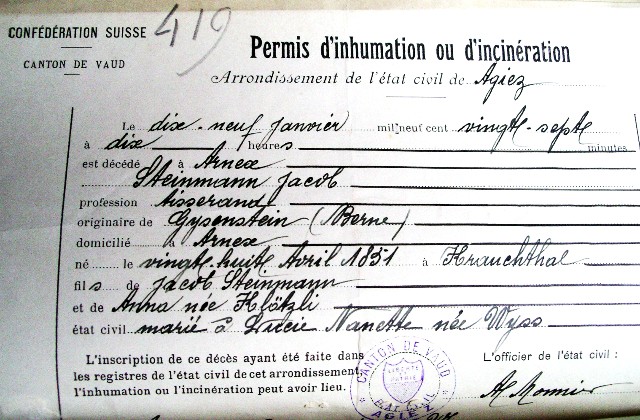 CONFÉDÉRATION SUISSE
CANTON DE VAUD
419
Permis d'inhumation ou d'incinération
Arrondissement de l'état civil de Agiez
Le dix-neuf janvier mil neuf cent vingt-sept
à dix heures minutes
est décédé à Arnex
Steinmann Jacob
profession tisserand
originaire de Gysenstein (Berne)
domicilié à Arnex
né le vingt-huit Avril 1851 à Krauchthal
fils de Jacob Steinmann
et de Anna née Klötzli
état civil marié à Luccie Nanette née Wyss
L'inscription de ce décès ayant été faite dans
les registres de l'état civil de cet arrondissement
l'inhumation ou l'incinération peut avoir lieu.
CANTON DE VAUD
LIBERTÉ ET PATRIE
ETAT CIVIL
AGIEZ
L'officier de l'état civil :
Monnier